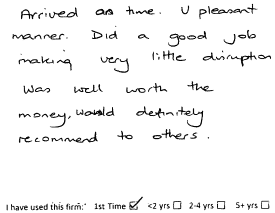 Arrived on time. V pleasant
manner. Did a good job
making very little disruption
Was well worth the
money, would definitely
recommend to others.
I have used this firm: 1st Time ☑ <2 yrs ☐ 2-4 yrs ☐ 5+ yrs ☐